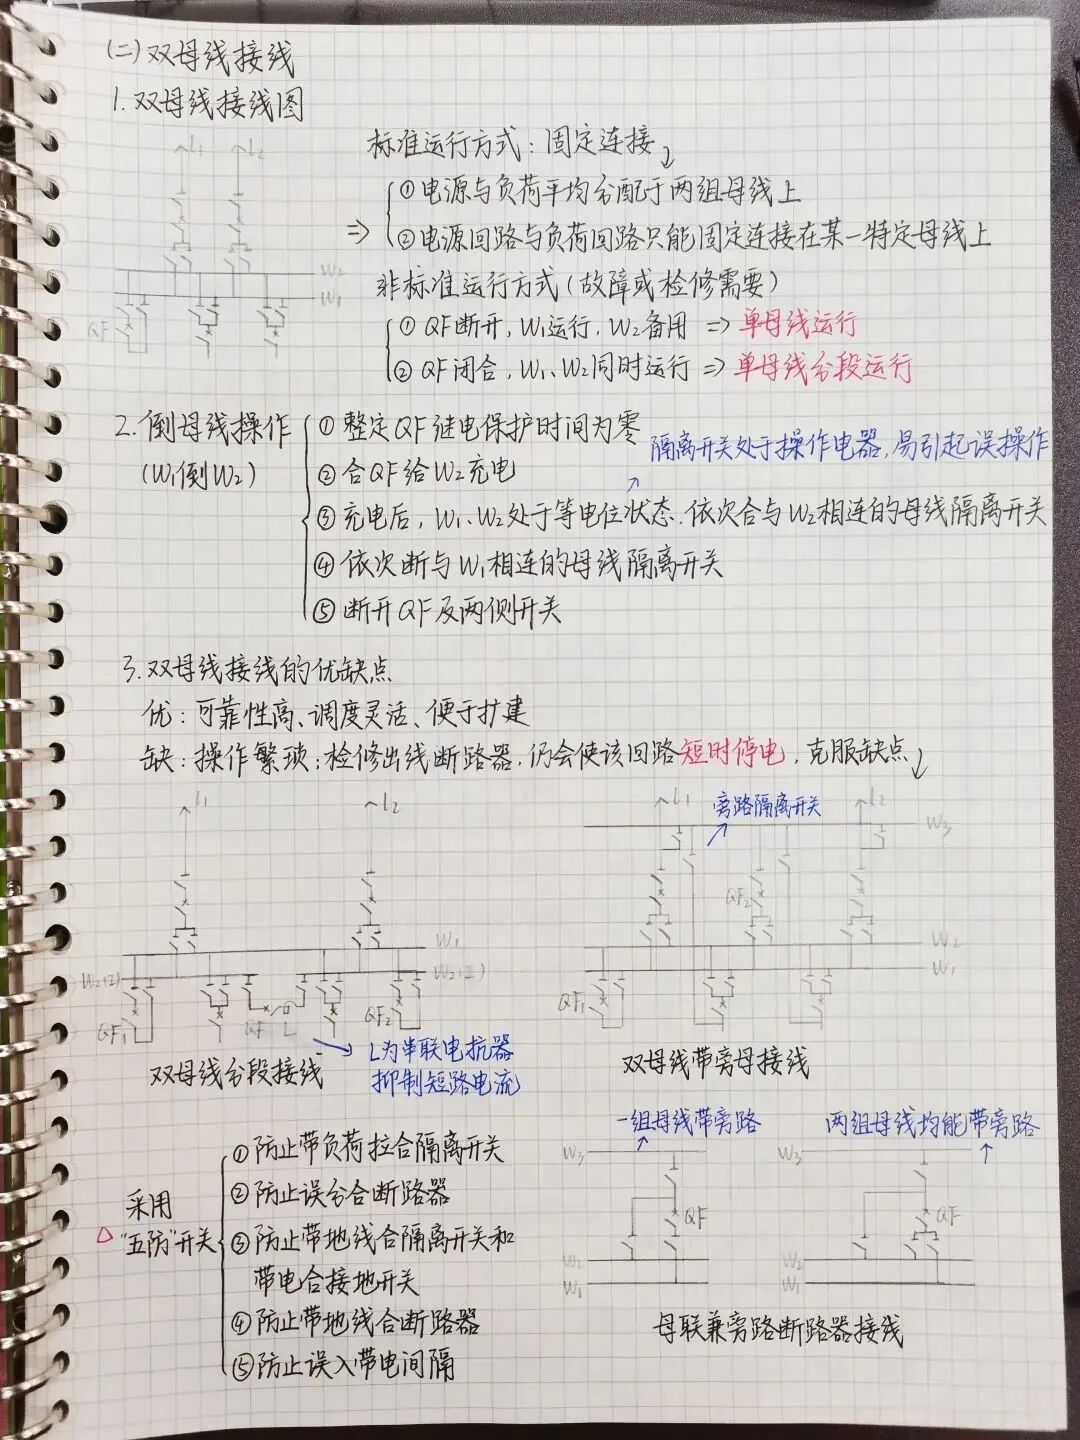 (二)双母线接线
1. 双母线接线图
标准运行方式：固定连接
①电源与负荷平均分配于两组母线上
⇒
②电源回路与负荷回路只能固定连接在某一特定母线上
非标准运行方式(故障或检修需要)
①QF断开，W₁运行，W₂备用 ⇒ 单母线运行
②QF闭合，W₁、W₂同时运行 ⇒ 单母线分段运行
L₁ L₂
W₂
W₁
QF
2. 倒母线操作
(W₁倒W₂)
①整定QF继电保护时间为零
隔离开关处于操作电器，易引起误操作
②合QF给W₂充电
③充电后，W₁、W₂处于等电位状态，依次合与W₂相连的母线隔离开关
④依次断与W₁相连的母线隔离开关
⑤断开QF及两侧开关
3. 双母线接线的优缺点
优：可靠性高、调度灵活、便于扩建
缺：操作繁琐；检修出线断路器，仍会使该回路短时停电，克服缺点
L₁ L₂
W₁
W₂(I) W₂(II)
QF₁ QF L QF₂
L为串联电抗器
抑制短路电流
双母线分段接线
L₁ 旁路隔离开关 L₂
W₃
QF₂
W₂
W₁
QF₁
双母线带旁母接线
采用
△ "五防"开关
①防止带负荷拉合隔离开关
②防止误分合断路器
③防止带地线合隔离开关和
带电合接地开关
④防止带地线合断路器
⑤防止误入带电间隔
一组母线带旁路
W₃
QF
W₂
W₁
两组母线均能带旁路
W₃
QF
W₂
W₁
母联兼旁路断路器接线